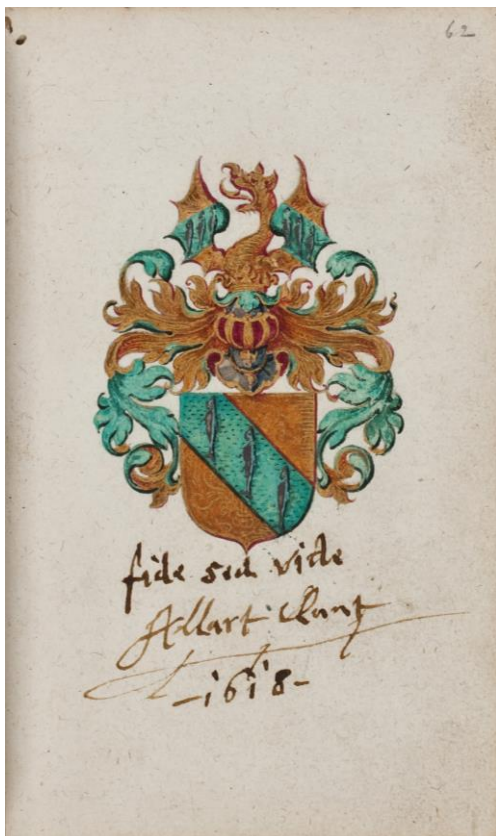 62
fide sed vide
Allart Clant
-1618-